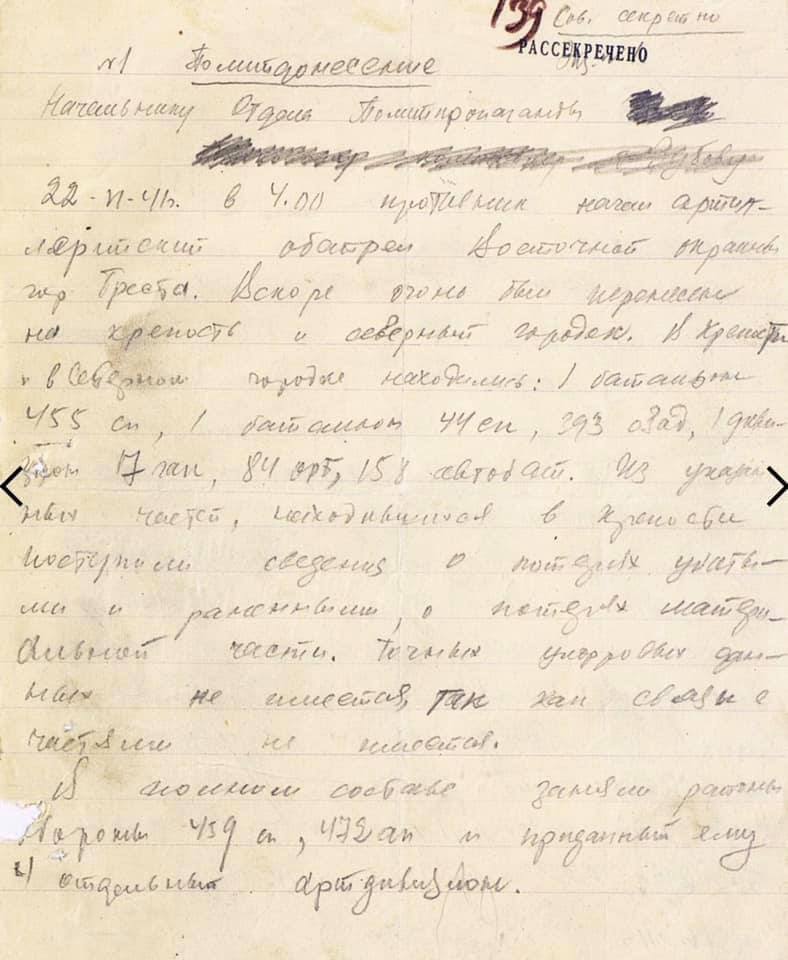 139 Сов. секретно
РАССЕКРЕЧЕНО
№1 Политдонесение
Начальнику Отдела Политпропаганды
22-VI-41г. в 4.00 противник начал артил-
лерийский обстрел Восточной окраины
гор Бреста. Вскоре огонь был перенесен
на крепость и северный городок. В крепости
и в Северном городке находились: 1 батальон
455 сп, 1 батальон 44 сп, 393 оЗад, 1 диви-
зион 17 гап, 84 орб, 158 автобат. Из указан
ных частей, находившихся в крепости
поступили сведения о потерях убиты-
ми и ранеными, о потерях матери-
альной части. Точных цифровых дан-
ных не имеется, так как связи с
частями не имеется.
В полном составе заняли районы
обороны 459 сп, 472 ап и приданный ему
отдельный артдивизион.